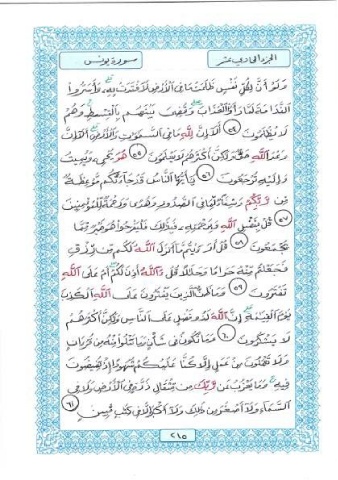 الجزء الحادي عشر
سورة يونس
ولو أن لكل نفس ظلمت ما في الأرض لافتدت به وأسروا
الندامة لما رأوا العذاب وقضي بينهم بالقسط وهم
لا يظلمون ٥٤ ألا إن لله ما في السموات والأرض ألا إن
وعد الله حق ولكن أكثرهم لا يعلمون ٥٥ هو يحي ويميت
وإليه ترجعون ٥٦ يأيها الناس قد جاءتكم موعظة
من ربكم وشفاء لما في الصدور وهدى ورحمة للمؤمنين
٥٧ قل بفضل الله وبرحمته فبذلك فليفرحوا هو خير مما
يجمعون ٥٨ قل أرءيتم ما أنزل الله لكم من رزق
فجعلتم منه حراما وحلالا قل ءآلله أذن لكم أم على الله
تفترون ٥٩ وما ظن الذين يفترون على الله الكذب
يوم القيمة إن الله لذو فضل على الناس ولكن أكثرهم
لا يشكرون ٦٠ وما تكون في شأن وما تتلوا منه من قرءان
ولا تعملون من عمل إلا كنا عليكم شهودا إذ تفيضون
فيه وما يعزب عن ربك من مثقال ذرة في الأرض ولا في
السماء ولا أصغر من ذلك ولا أكبر إلا في كتب مبين ٦١
٢١٥